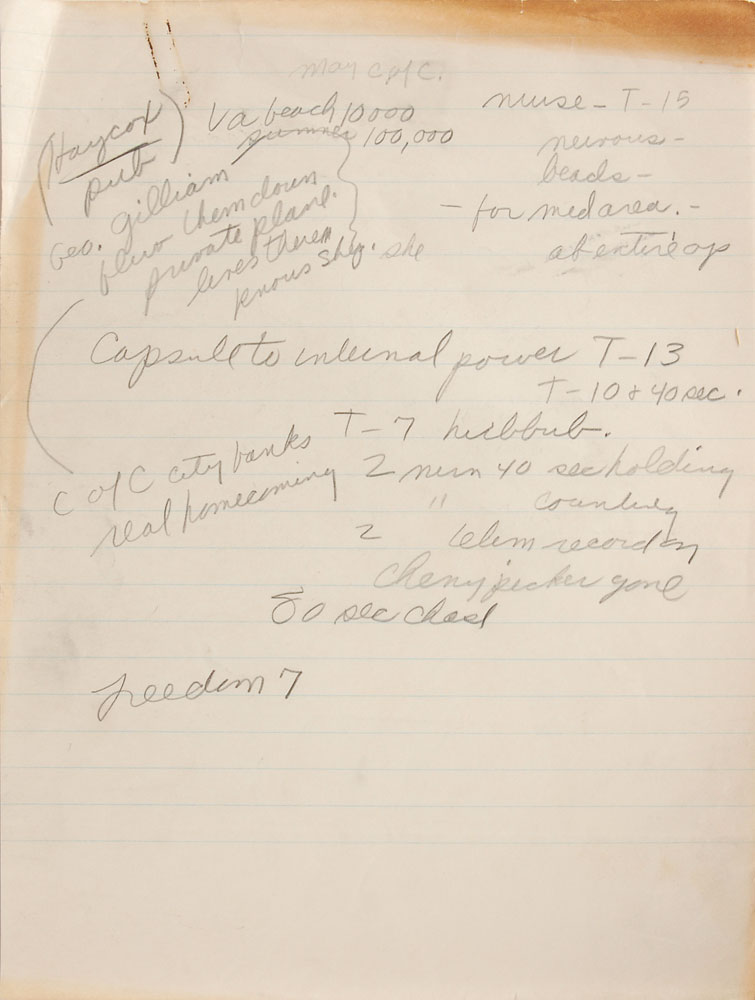 May C of C.
(Haycox
pub)
Va beach 10000
summer 100,000
Geo. Gilliam
flew them down
private plane.
lives there
knows Shep. she
nurse - T-15
nervous -
beads -
- for med area. -
at entire op
Capsule to internal power T-13
T-10 & 40 sec.
C of C city banks
real homecoming
T-7 hubbub.
2 min 40 sec holding
" counting
2 telem recording
Cherry picker gone
80 sec
Freedom 7